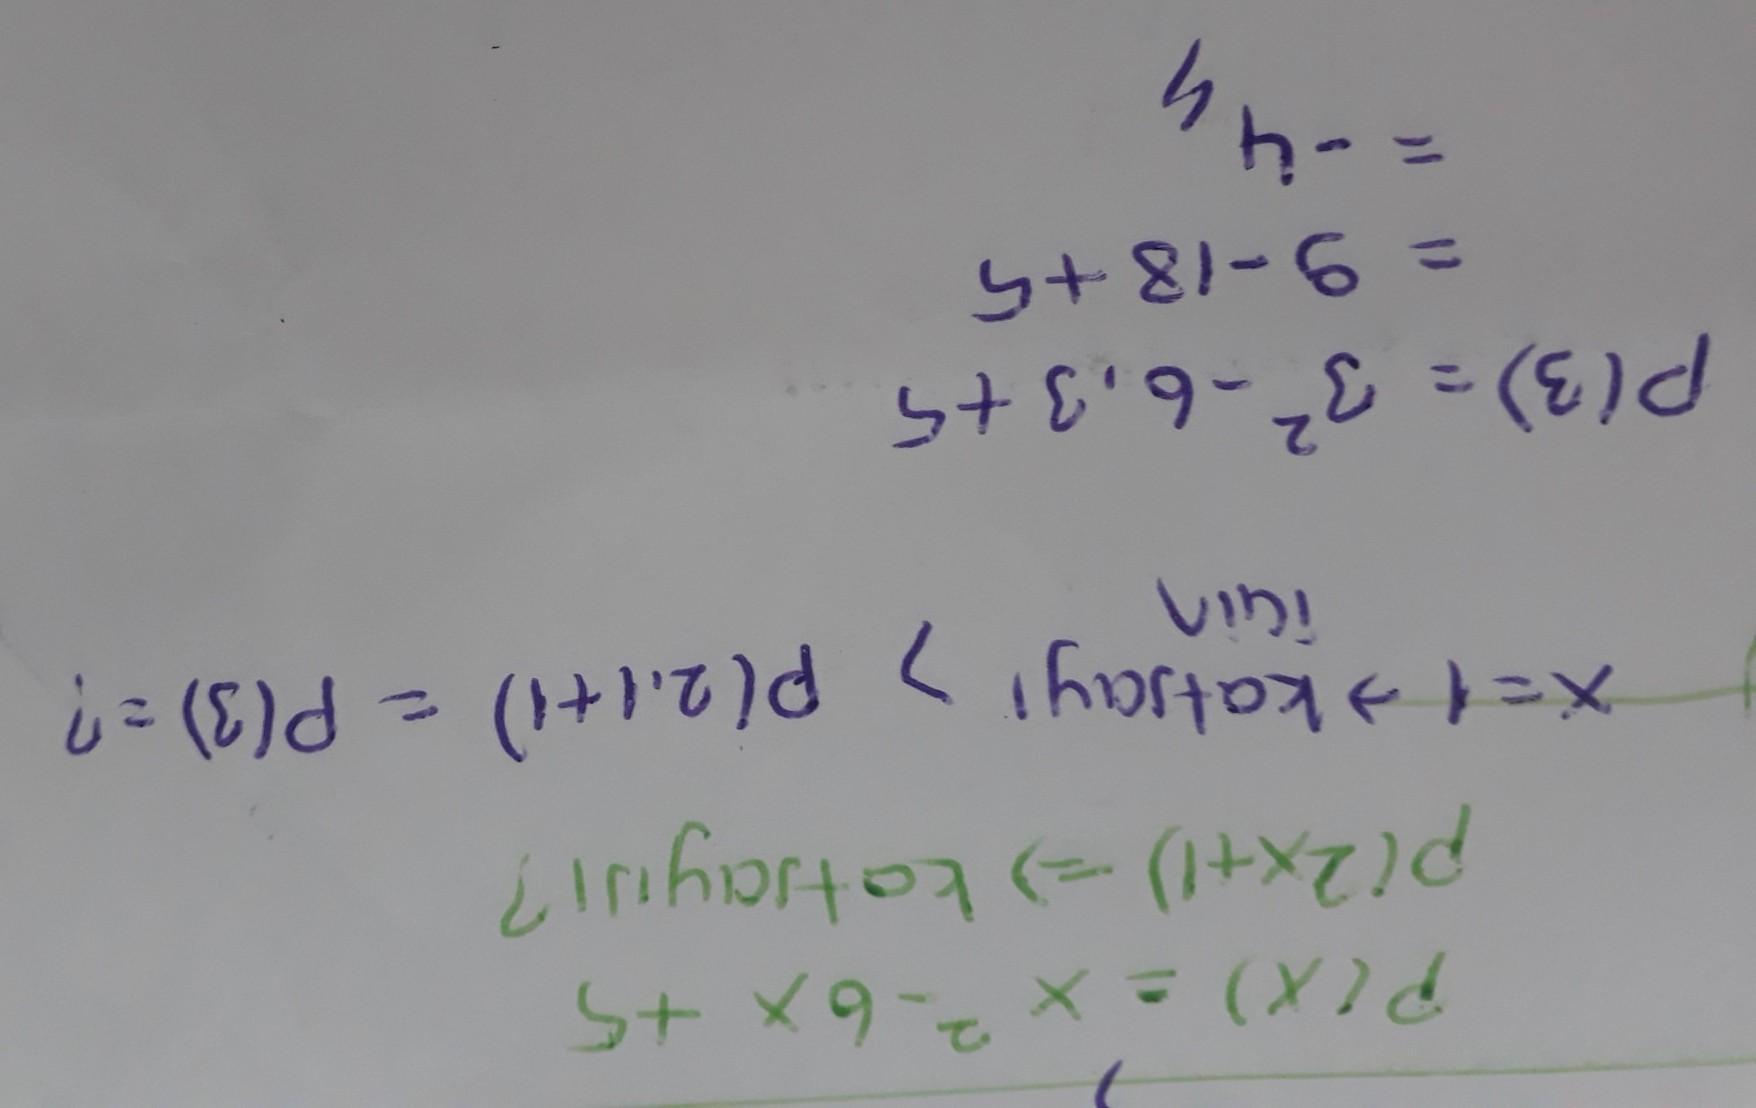 P(x) = x² - 6x + 5
P(2x+1) => katsayısı?
x=1 → katsayı için > P(2.1+1) = P(3) = ?
P(3) = 3² - 6.3 + 5
= 9 - 18 + 5
= -4